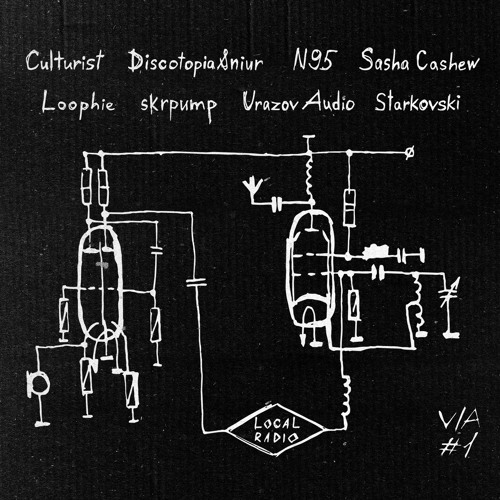 Culturist DiscotopiaSniur N95 Sasha Cashew
Loophie skrpump Urazov Audio Starkovski
LOCAL
RADIO
V/A
#1